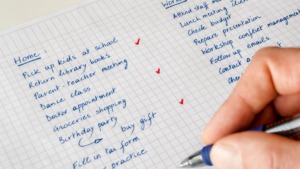 Home:
Pick up kids at school
Return library books
Parent-teacher meeting
Dance class
Doctor appointment
Groceries shopping
Birthday party
buy gift
Fill in tax form
practice
Attend staff
Lunch meeting
Check budget
Prepare presentation
Workshop conflict management
Follow up emails
Contact a